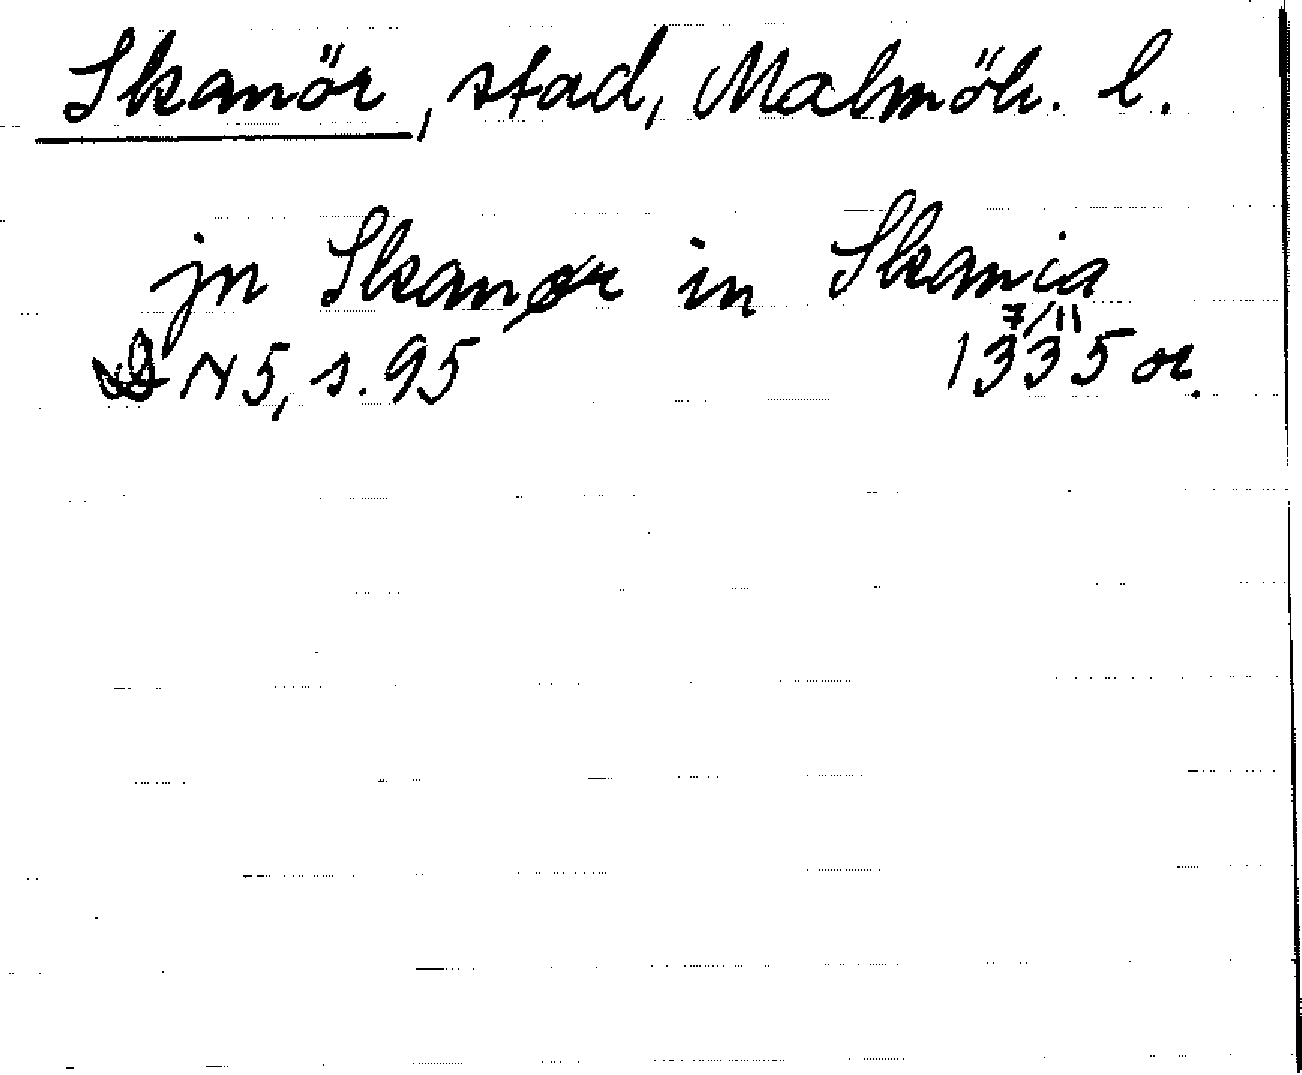 Skanör, stad, Malmöh. l.
jn Skanør in Skania
7/11
DN 5, s. 95 1335 or.